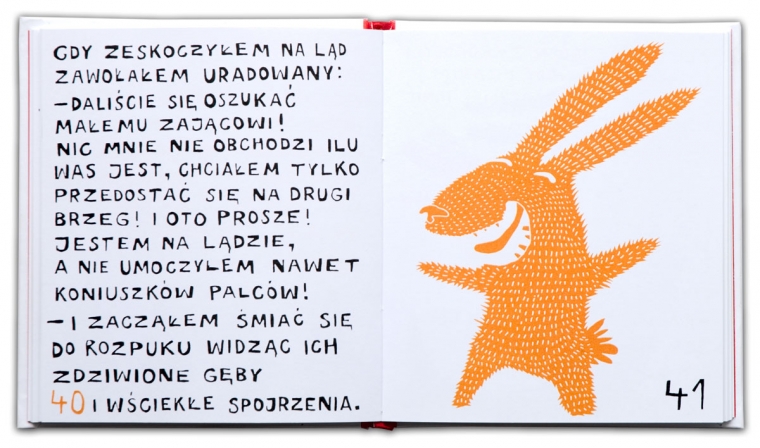 GDY ZESKOCZYŁEM NA LĄD
ZAWOŁAŁEM URADOWANY:
—DALIŚCIE SIĘ OSZUKAĆ
MAŁEMU ZAJĄCOWI!
NIC MNIE NIE OBCHODZI ILU
WAS JEST, CHCIAŁEM TYLKO
PRZEDOSTAĆ SIĘ NA DRUGI
BRZEG! I OTO PROSZE!
JESTEM NA LĄDZIE,
A NIE UMOCZYŁEM NAWET
KONIUSZKÓW PALCÓW!
—I ZACZĄŁEM ŚMIAĆ SIĘ
DO ROZPUKU WIDZĄC ICH
ZDZIWIONE GĘBY
40 I WŚCIEKŁE SPOJRZENIA.
41